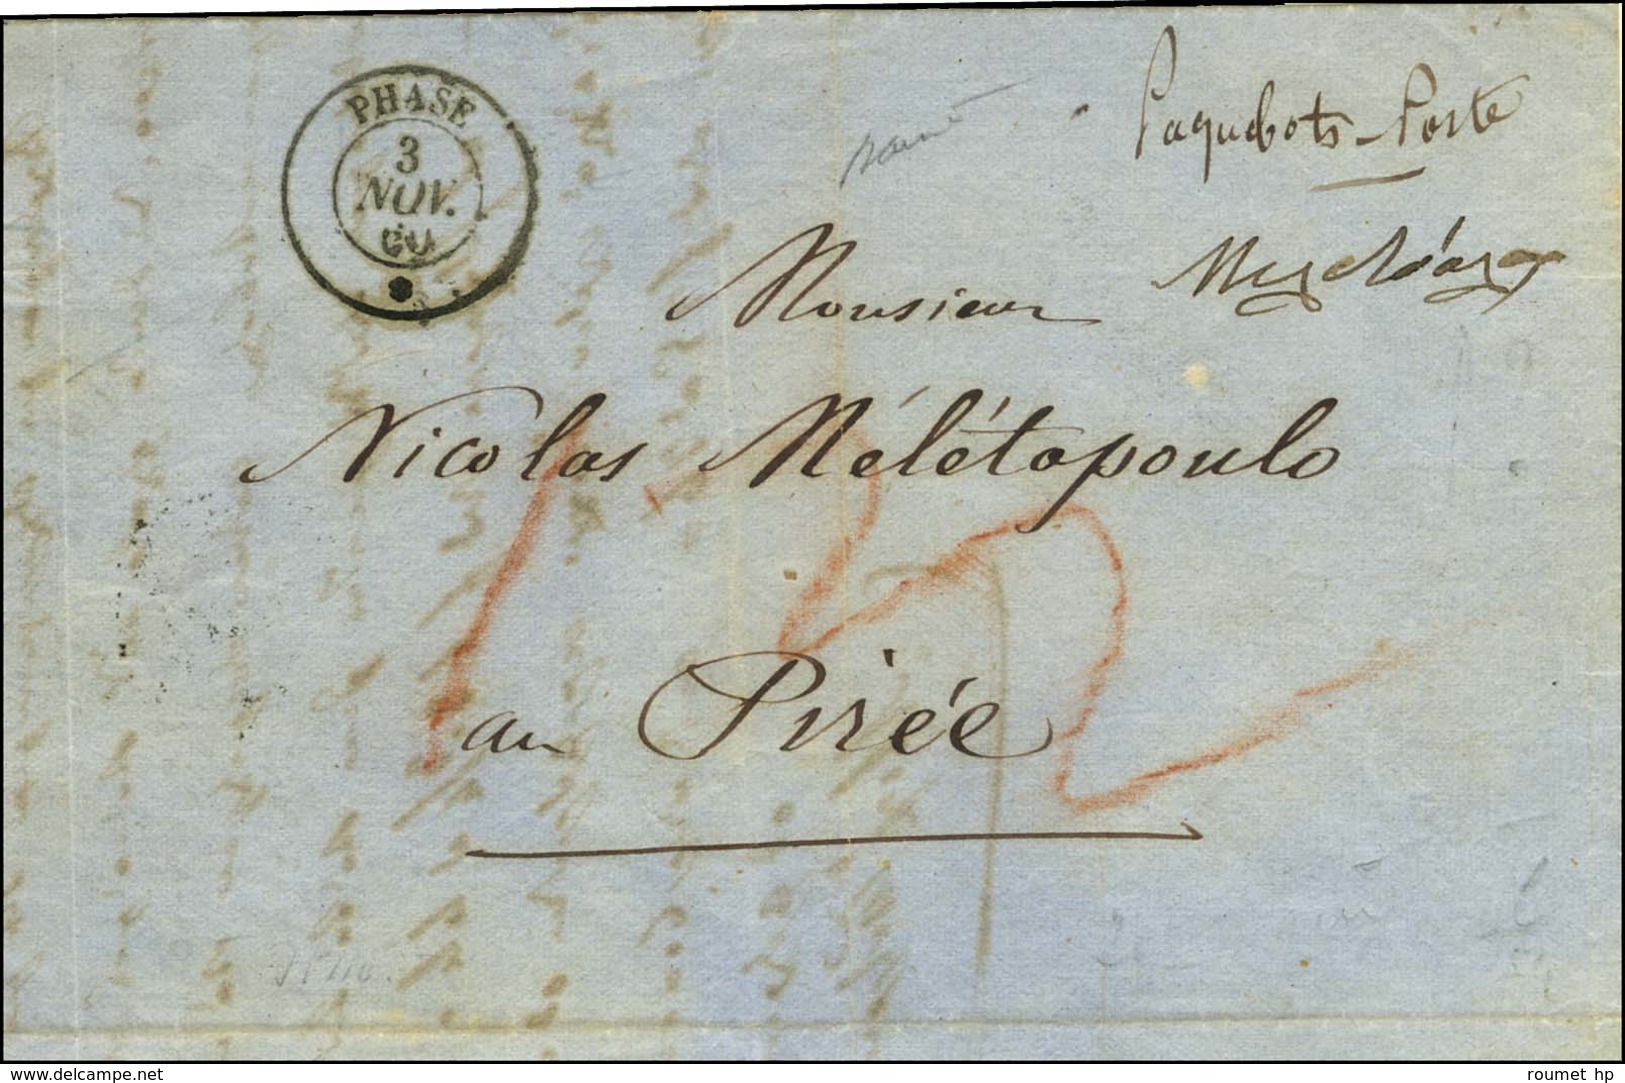 PHASE
3
NOV.
60
Paquebots-Poste
Monsieur
Nicolas Mélétopoulo
au Pirée
12
www.delcampe.net
roumet hp